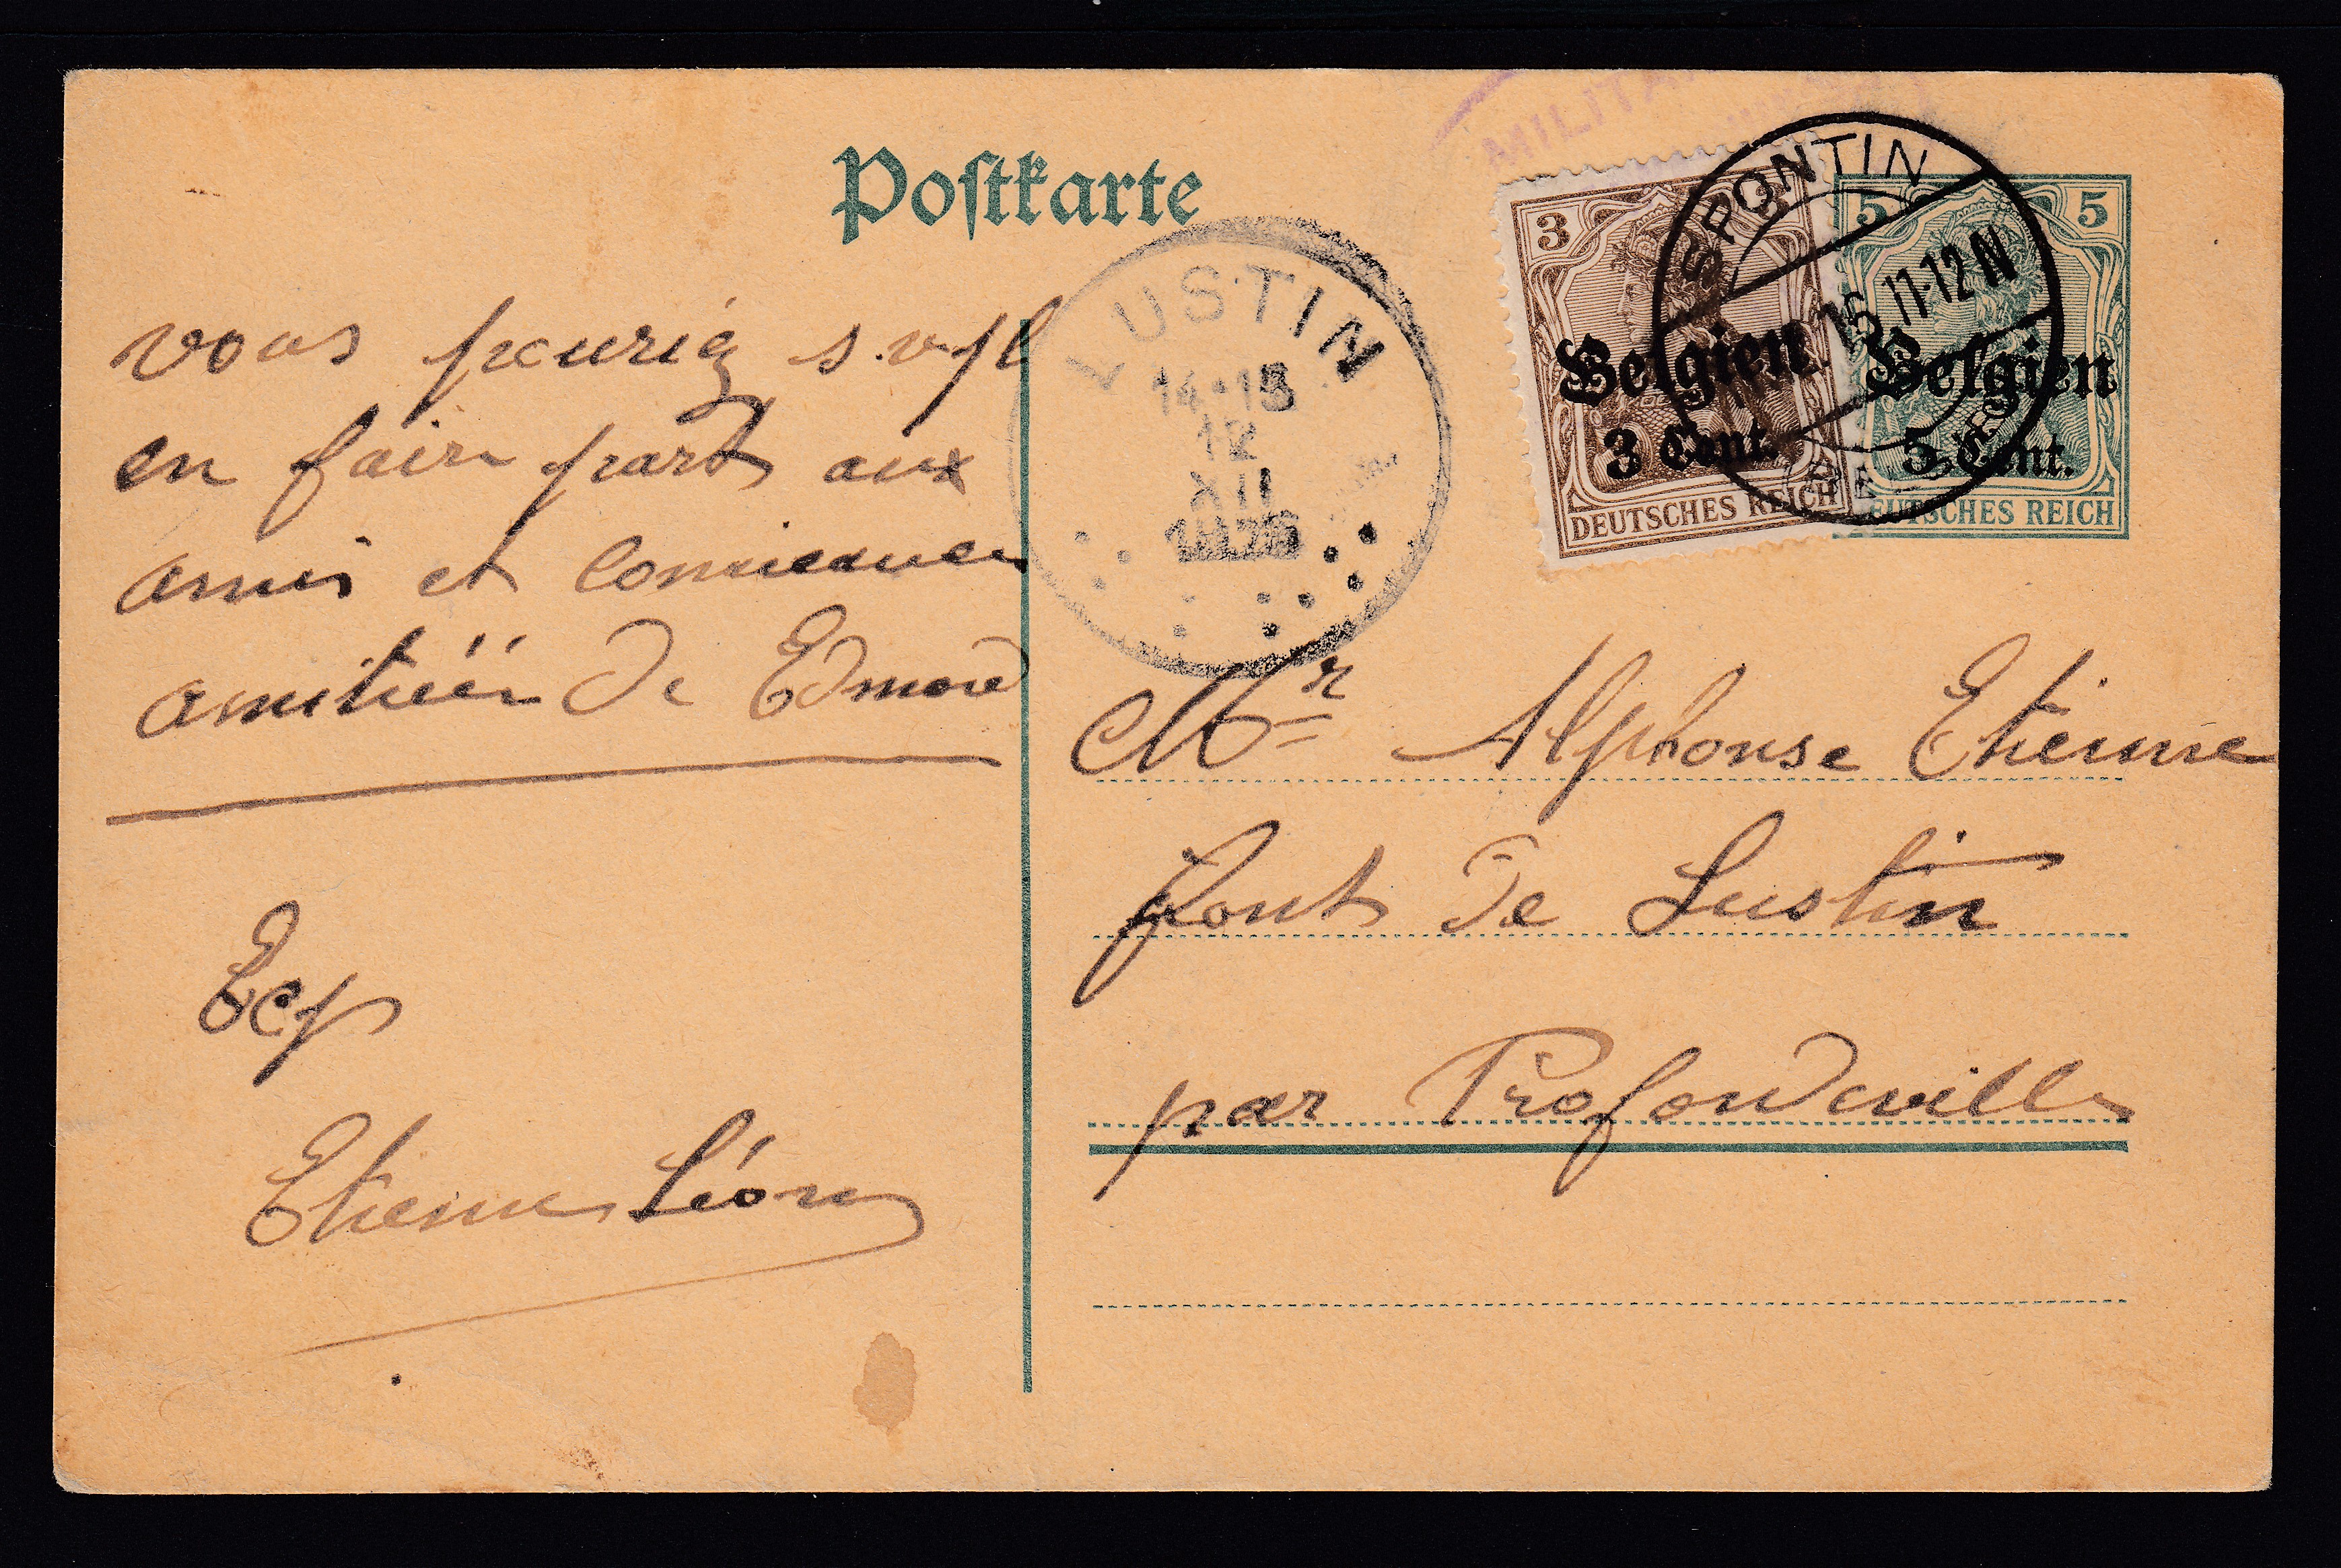 MILITÄ
Postkarte
SPONTIN
3
5 5
15 11-12 N
Belgien
3 Cent.
DEUTSCHES REICH
Belgien
5 Cent.
DEUTSCHES REICH
LUSTIN
14-15
12
XII
vous pouriez s.v.pl
en faire part aux
amis et
amitiées de Edmond
Exp
Etienne Léon
Mr Alphonse Etienne
pont de Lustin
par Profondeville